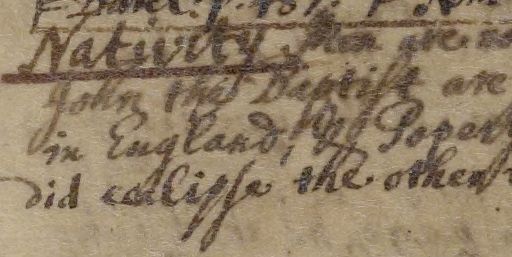 Nativity. there are no
John the Baptist are
in England, yt Popery
did eclipse the other